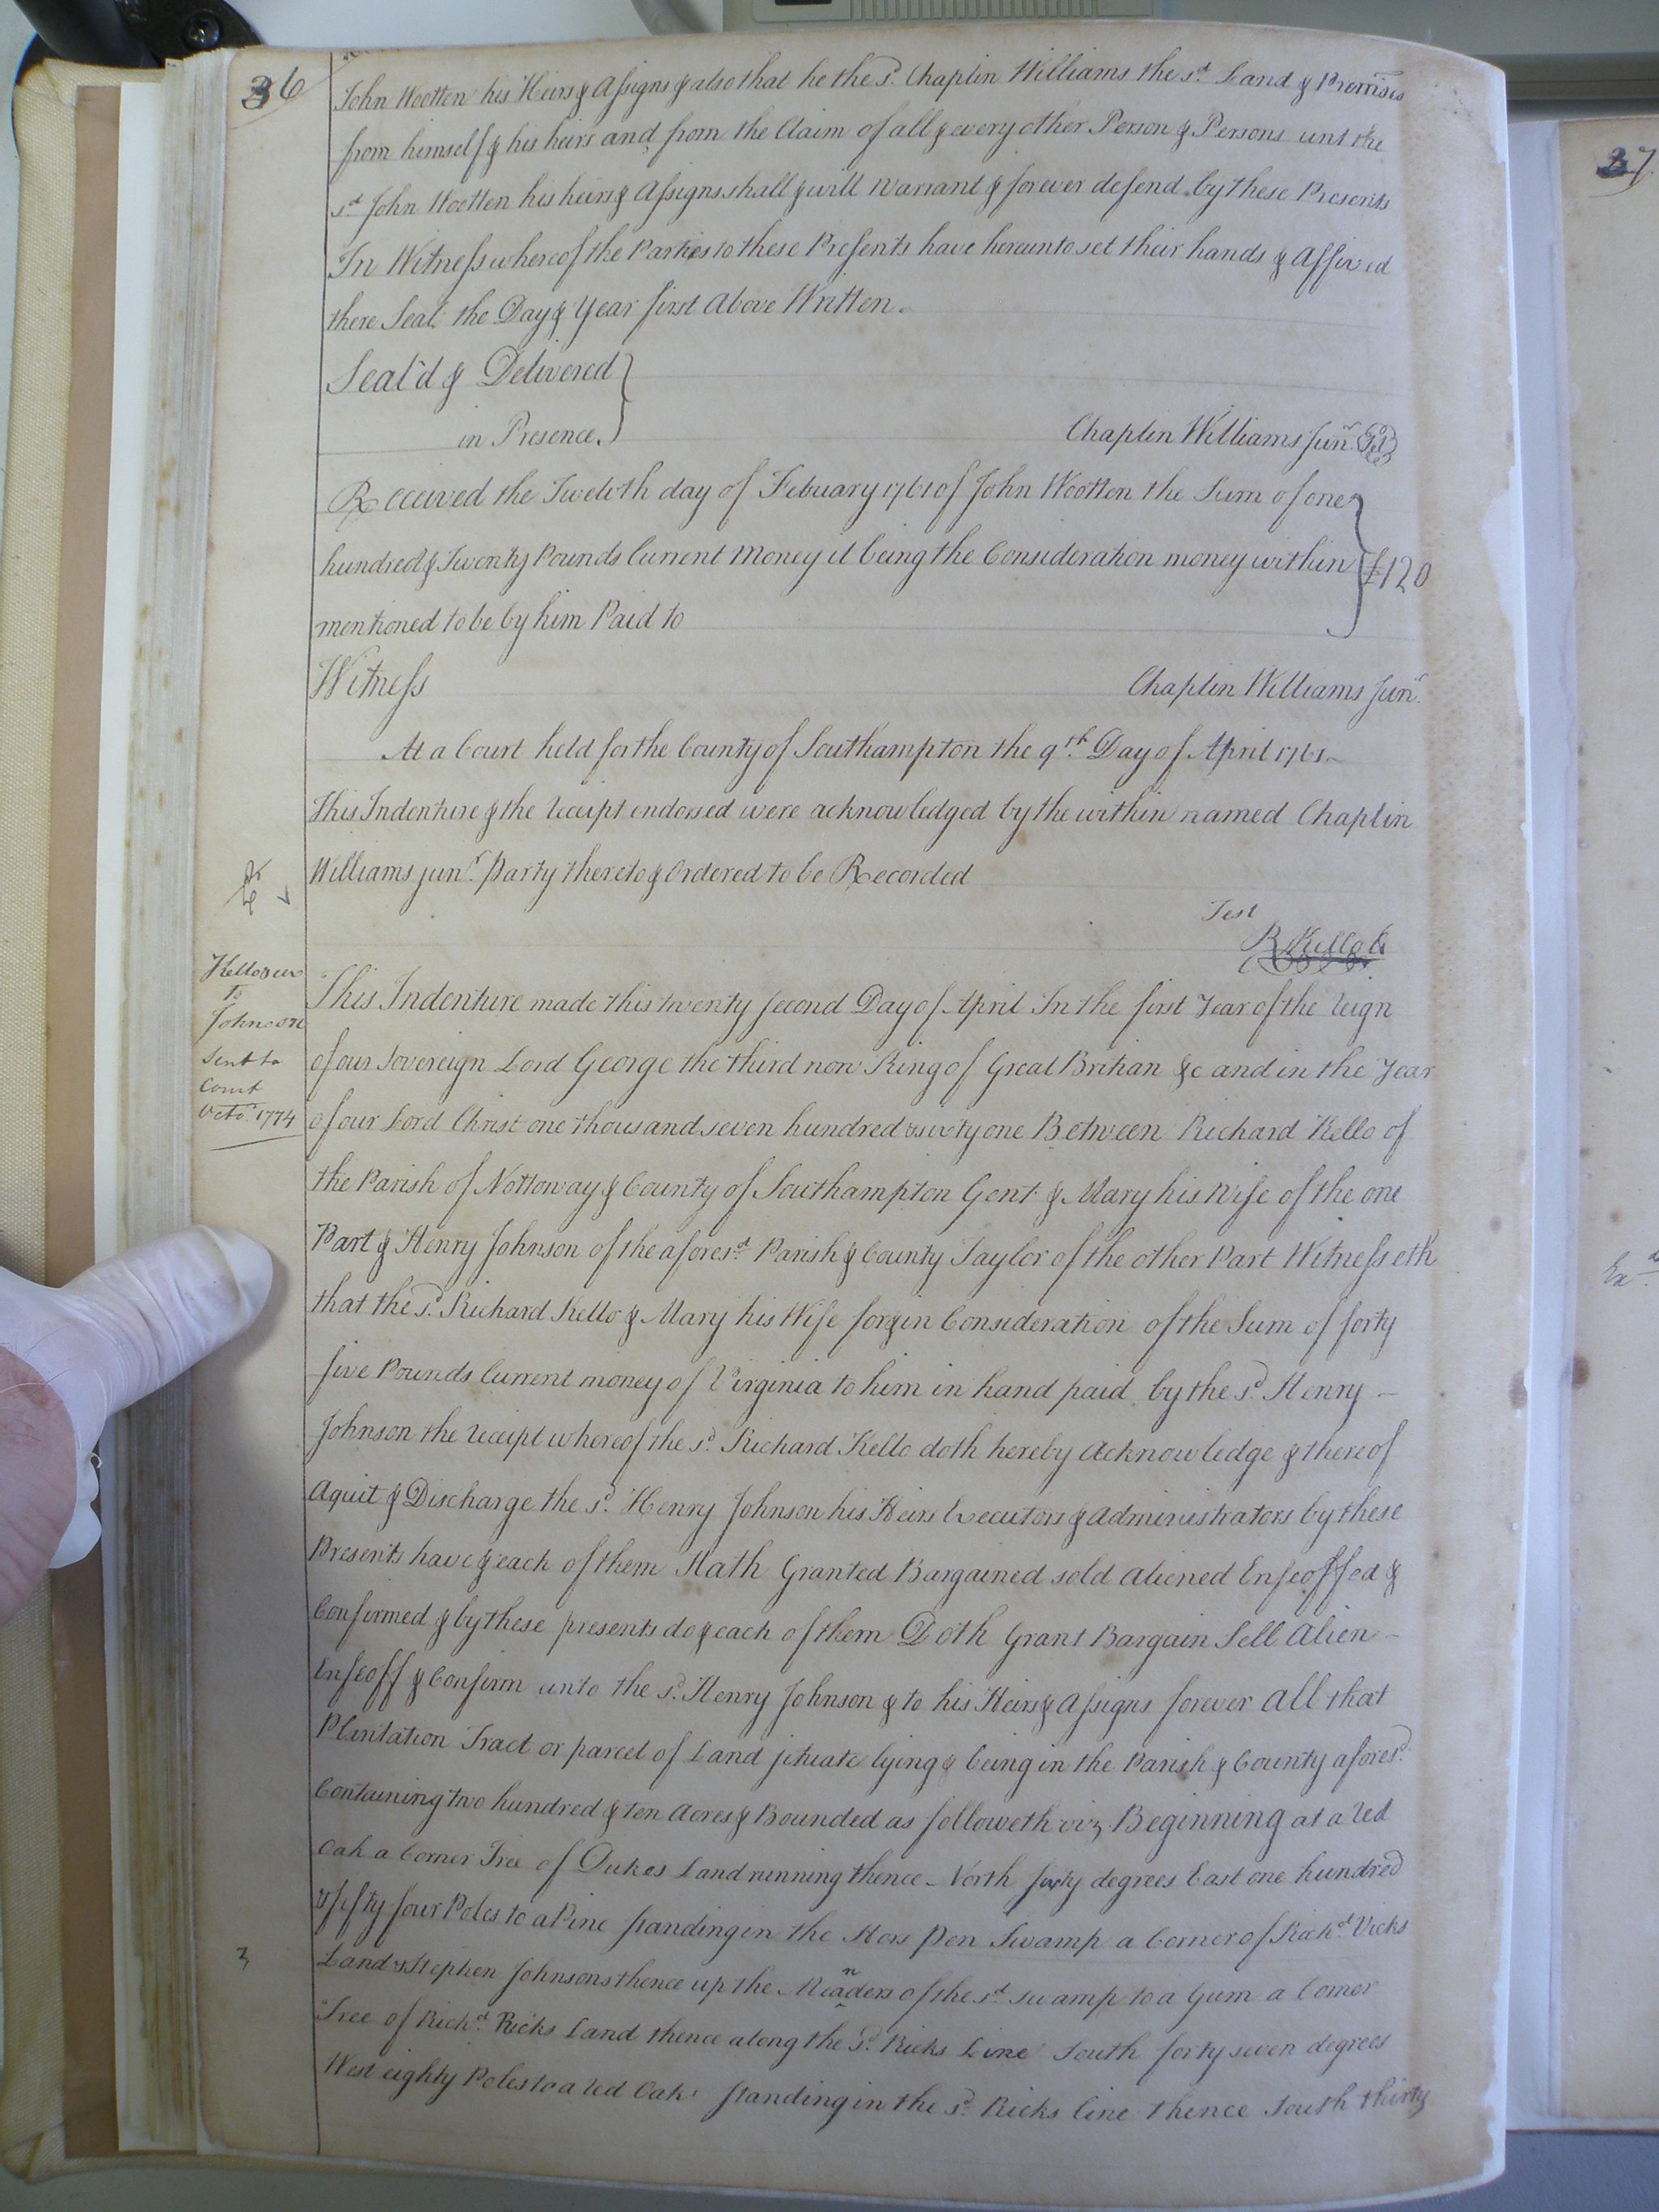 36
John Wootten his Heirs & Assigns & also that he the sd. Chaplin Williams the sd. Land & Premises
from himself & his heirs and from the Claim of all & every other Person & Persons unt the
sd. John Wootten his heirs & Assigns shall & will warrant & forever defend by these Presents
In Witness whereof the Parties to these Presents have hereunto set their hands & Affixed
there Seal the Day & Year first Above Written.
Seal'd & Delivered
in Presence
Chaplin Williams Junr.
Received the Twelvth day of Febuary 1761 of John Wootten the Sum of one
hundred & Twenty Pounds Current Money it being the Consideration money within £120
mentioned to be by him Paid to
Witness
Chaplin Williams Junr.
At a Court held for the County of Southampton the 9th. Day of April 1761
This Indenture & the receipt endorsed were acknowledged by the within named Chaplin
Williams junr. Party thereto & Ordered to be Recorded
Test
R Kello
Kello & ux
to
Johnson
Sent to
Court
Octor. 1774
This Indenture made this twenty second Day of April In the first Year of the Reign
of our Sovereign Lord George the third now King of Great Britian &c and in the Year
of our Lord Christ one thousand seven hundred & sixty one Between Richard Kello of
the Parish of Nottoway & County of Southampton Gent & Mary his Wife of the one
Part & Henry Johnson of the aforesd. Parish & County Taylor of the other Part Witnesseth
that the sd. Richard Kello & Mary his Wife for & in Consideration of the Sum of forty
five Pounds Current money of Virginia to him in hand paid by the sd. Henry
Johnson the receipt whereof the sd. Richard Kello doth hereby Acknowledge & thereof
Aquit & Discharge the sd. Henry Johnson his Heirs Executors & Administrators by these
Presents have & each of them Hath Granted Bargained sold Aliened Enfeoffed &
Confirmed & by these presents do & each of them Doth Grant Bargain Sell Alien
Enfeoff & Confirm unto the sd. Henry Johnson & to his Heirs & Assigns forever all that
Plantation Tract or parcel of Land situate lying & being in the Parish & County aforesd.
Containing two hundred & ten Acres & Bounded as followeth viz Beginning at a Red
Oak a Corner Tree of Dukes Land running thence North forty degrees East one hundred
& fifty four Poles to a Pine standing in the Hors Pen Swamp a Corner of Richd. Vicks
3
Land & Stephen Johnsons thence up the Meanders of the sd. swamp to a Gum a Corner
Tree of Richd. Ricks Land thence along the sd. Ricks Line South forty seven degrees
West eighty Poles to a Red Oak standing in the sd. Ricks line thence South thirty
37
Exd.